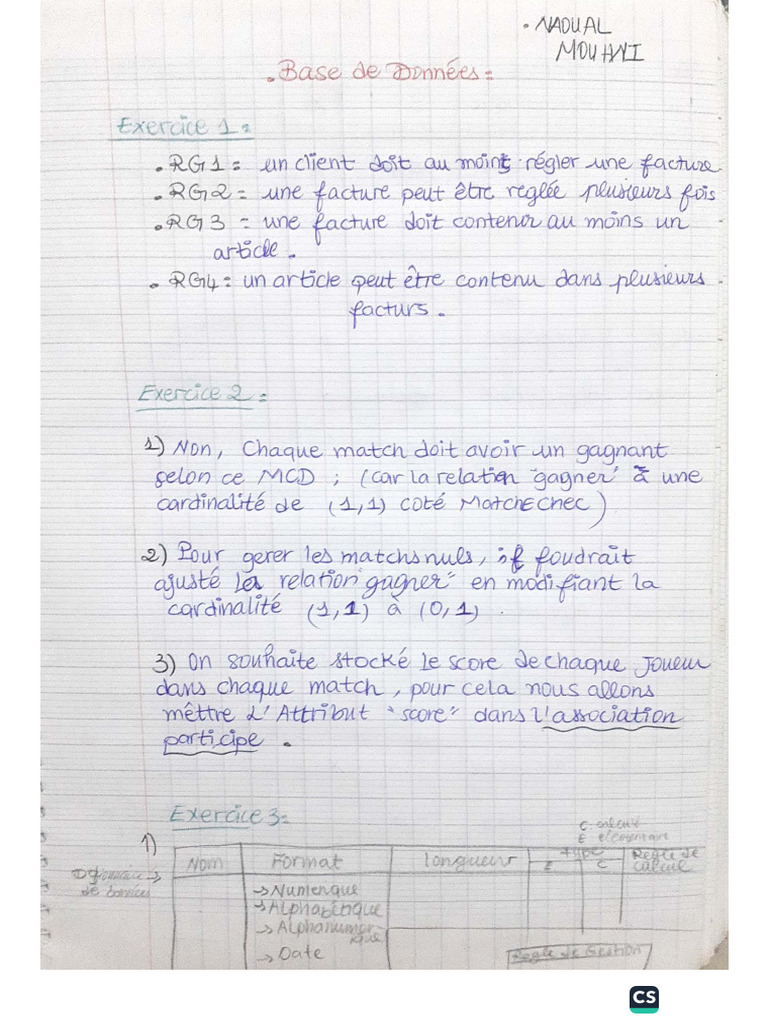 • NAOUAL
MOUHNI
• Base de Données :
Exercice 1 :
• RG1 = un client doit au moins régler une facture
• RG2 = une facture peut être reglée plusieurs fois
• RG3 = une facture doit contenir au moins un
article.
• RG4 = un article peut être contenu dans plusieurs
facturs.
Exercice 2 :
1) Non, Chaque match doit avoir un gagnant
selon ce MCD ; (car la relation "gagner" à une
cardinalité de (1,1) coté MatchEchec)
2) Pour gerer les matchs nuls, il foudrait
ajusté la relation "gagner" en modifiant la
cardinalité (1,1) à (0,1).
3) On souhaite stocké le score de chaque Joueur
dans chaque match, pour cela nous allons
mêttre L'Attribut "score" dans l'association
participe.
Exercice 3 :
C calculé
E élementaire
1)
Nom Format longueur type Regle de
E C calcul
Dictionnaire →
de données
→ Numerique
→ Alphabétique
→ Alphanumer
ique
→ Date
Regle de Gestion
CS